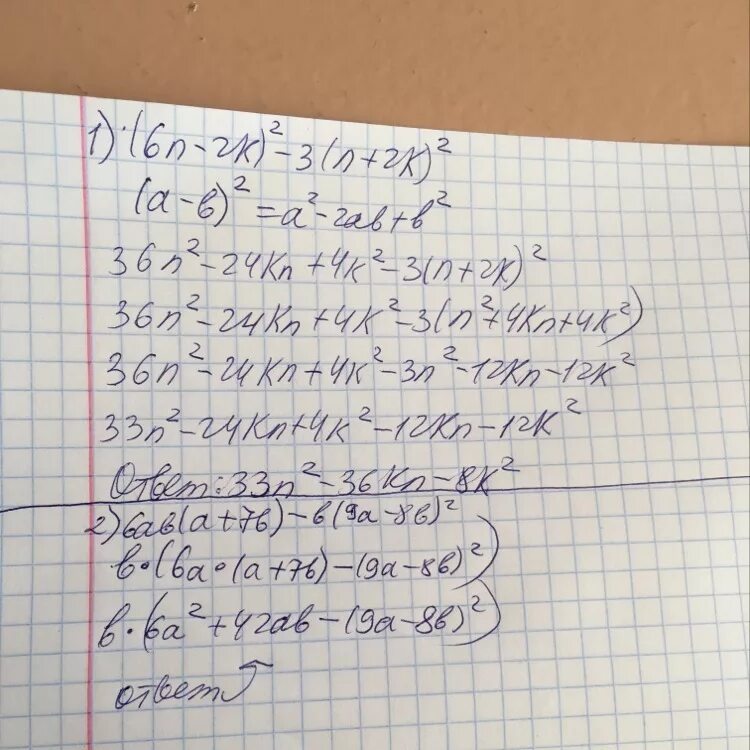 1) (6n-2k)²-3(n+2k)²
(a-в)²=a²-2aв+в²
36n²-24kn+4k²-3(n+2k)²
36n²-24kn+4k²-3(n²+4kn+4k²)
36n²-24kn+4k²-3n²-12kn-12k²
33n²-24kn+4k²-12kn-12k²
Ответ: 33n²-36kn-8k²
2) 6aв(a+7в)-в(9a-8в)²
в·(6a·(a+7в)-(9a-8в)²)
в·(6a²+42aв-(9a-8в)²)
ответ